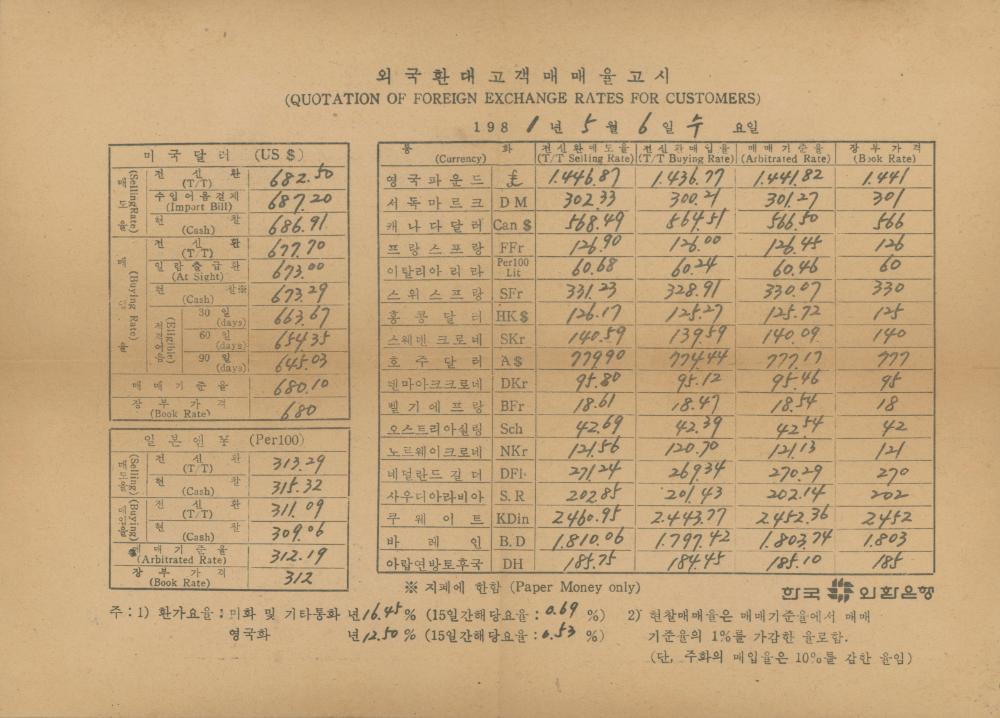 외국환대고객매매율고시
(QUOTATION OF FOREIGN EXCHANGE RATES FOR CUSTOMERS)
1981년 5월 6일 수요일
미국달러 (US $)
매도율 (Selling Rate)
전신환 (T/T) 682.50
수입어음결제 (Import Bill) 687.20
현찰 (Cash) 686.91
매입율 (Buying Rate)
전신환 (T/T) 677.70
일람출급환 (At Sight) 673.00
현찰※ (Cash) 673.29
적격어음 (Eligible)
30일 (days) 663.67
60일 (days) 654.35
90일 (days) 645.03
매매기준율 680.10
장부가격 (Book Rate) 680
일본엔화 (Per100)
매도율 (Selling)
전신환 (T/T) 313.29
현찰 (Cash) 315.32
매입율 (Buying)
전신환 (T/T) 311.09
현찰 (Cash) 309.06
매매기준율 (Arbitrated Rate) 312.19
장부가격 (Book Rate) 312
통화 (Currency) 전신환매도율 (T/T Selling Rate) 전신환매입율 (T/T Buying Rate) 매매기준율 (Arbitrated Rate) 장부가격 (Book Rate)
영국파운드 £ 1.446.87 1.436.77 1.441.82 1.441
서독마르크 DM 302.33 300.21 301.27 301
캐나다달러 Can $ 568.49 564.51 566.50 566
프랑스프랑 FFr 126.90 126.00 126.45 126
이탈리아리라 Per100 Lit 60.68 60.24 60.46 60
스위스프랑 SFr 331.23 328.91 330.07 330
홍콩달러 HK $ 126.17 125.27 125.72 125
스웨덴크로네 SKr 140.59 139.59 140.09 140
호주달러 A$ 779.90 774.44 777.17 777
덴마아크크로네 DKr 95.80 95.12 95.46 95
벨기에프랑 BFr 18.61 18.47 18.54 18
오스트리아쉴링 Sch 42.69 42.39 42.54 42
노르웨이크로네 NKr 121.56 120.70 121.13 121
네덜란드길더 DFl 271.24 269.34 270.29 270
사우디아라비아 S.R 202.85 201.43 202.14 202
쿠웨이트 KDin 2460.95 2.443.77 2.452.36 2452
바레인 B.D 1.810.06 1.797.42 1.803.74 1.803
아랍연방토후국 DH 185.75 184.45 185.10 185
※ 지폐에 한함 (Paper Money only)
한국외환은행
주: 1) 환가요율: 미화 및 기타통화 년 16.45% (15일간해당요율: 0.69 %)
영국화 년 12.50 % (15일간해당요율: 0.53 %)
2) 현찰매매율은 매매기준율에서 매매
기준율의 1%를 가감한 율로함.
(단, 주화의 매입율은 10%를 감한 율임)